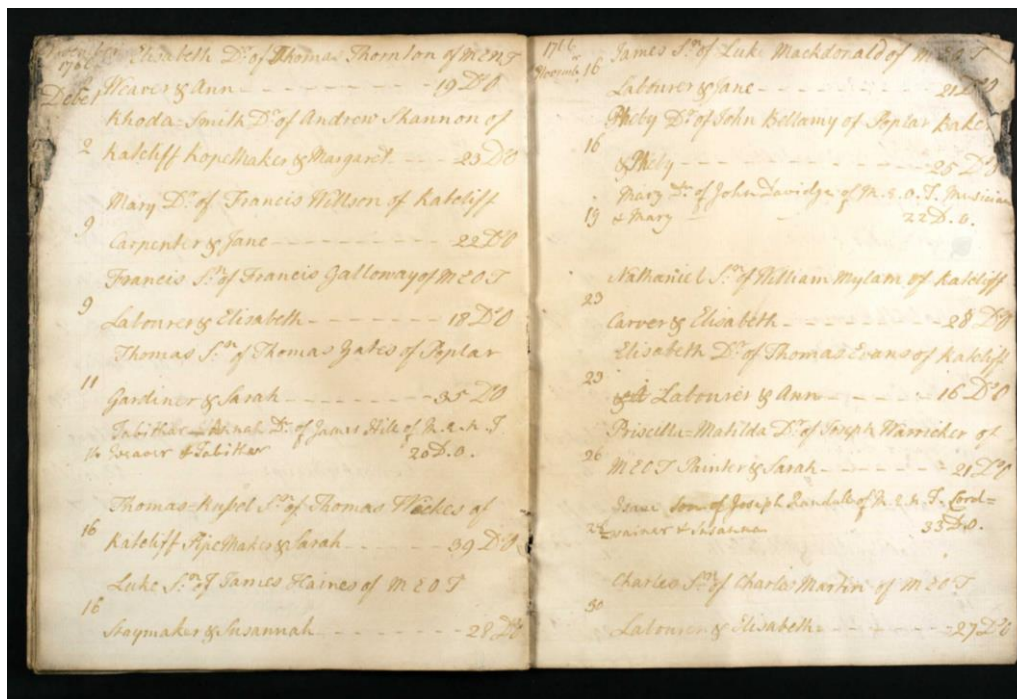 1766 Elisabeth Dr. of Thomas Thornton of MENT
Octobe 1 Weaver & Ann - - - - 19 D O
Rhoda-Smith Dr. of Andrew Shannon of
2 Ratcliff Rope Maker & Margaret - - - - 23 D O
Mary Dr. of Francis Willson of Ratcliff
9
Carpenter & Jane - - - - 22 D O
Francis Sn. of Francis Galloway of MEOT
9
Labourer & Elisabeth - - - - 18 D O
Thomas Sn. of Thomas Yates of Poplar
11
Gardiner & Sarah - - - - 35 D O
Tabitha Hannah Dr. of James Hile of M.E.N.T
14 Weaver & Tabitha 20 D. O.
Thomas-Rupel Sn. of Thomas Weekes of
16
Ratcliff Pipe Maker & Sarah - - - - 39 D O
Luke Sn. of James Haines of MEOT
16
Staymaker & Susannah - - - - 28 D O
1766 James Sn. of Luke Mackdonald of MEOT
November 16
Labourer & Jane - - - - 21 D O
Pheby Dr. of John Bellamy of Poplar Baker
16
& Pheby - - - - 25 D O
Mary Dr. of John Davidge of M.E.O.T. Musician
19 & Mary 22 D. O.
Nathaniel Sn. of William Mylam of Ratcliff
23
Carver & Elisabeth - - - - 28 D O
Elisabeth Dr. of Thomas Evans of Ratcliff
23
Labourer & Ann - - - - 16 D O
Priscilla-Matilda Dr. of Joseph Warricker of
26
MEOT Painter & Sarah - - - - 21 D O
Isaac Son of Joseph Randale of M.E.N.T. Cord=
wainer & Susanna 33 D. O.
Charles Sn. of Charles Martin of MEOT
30
Labourer & Elisabeth - - - - 27 D O